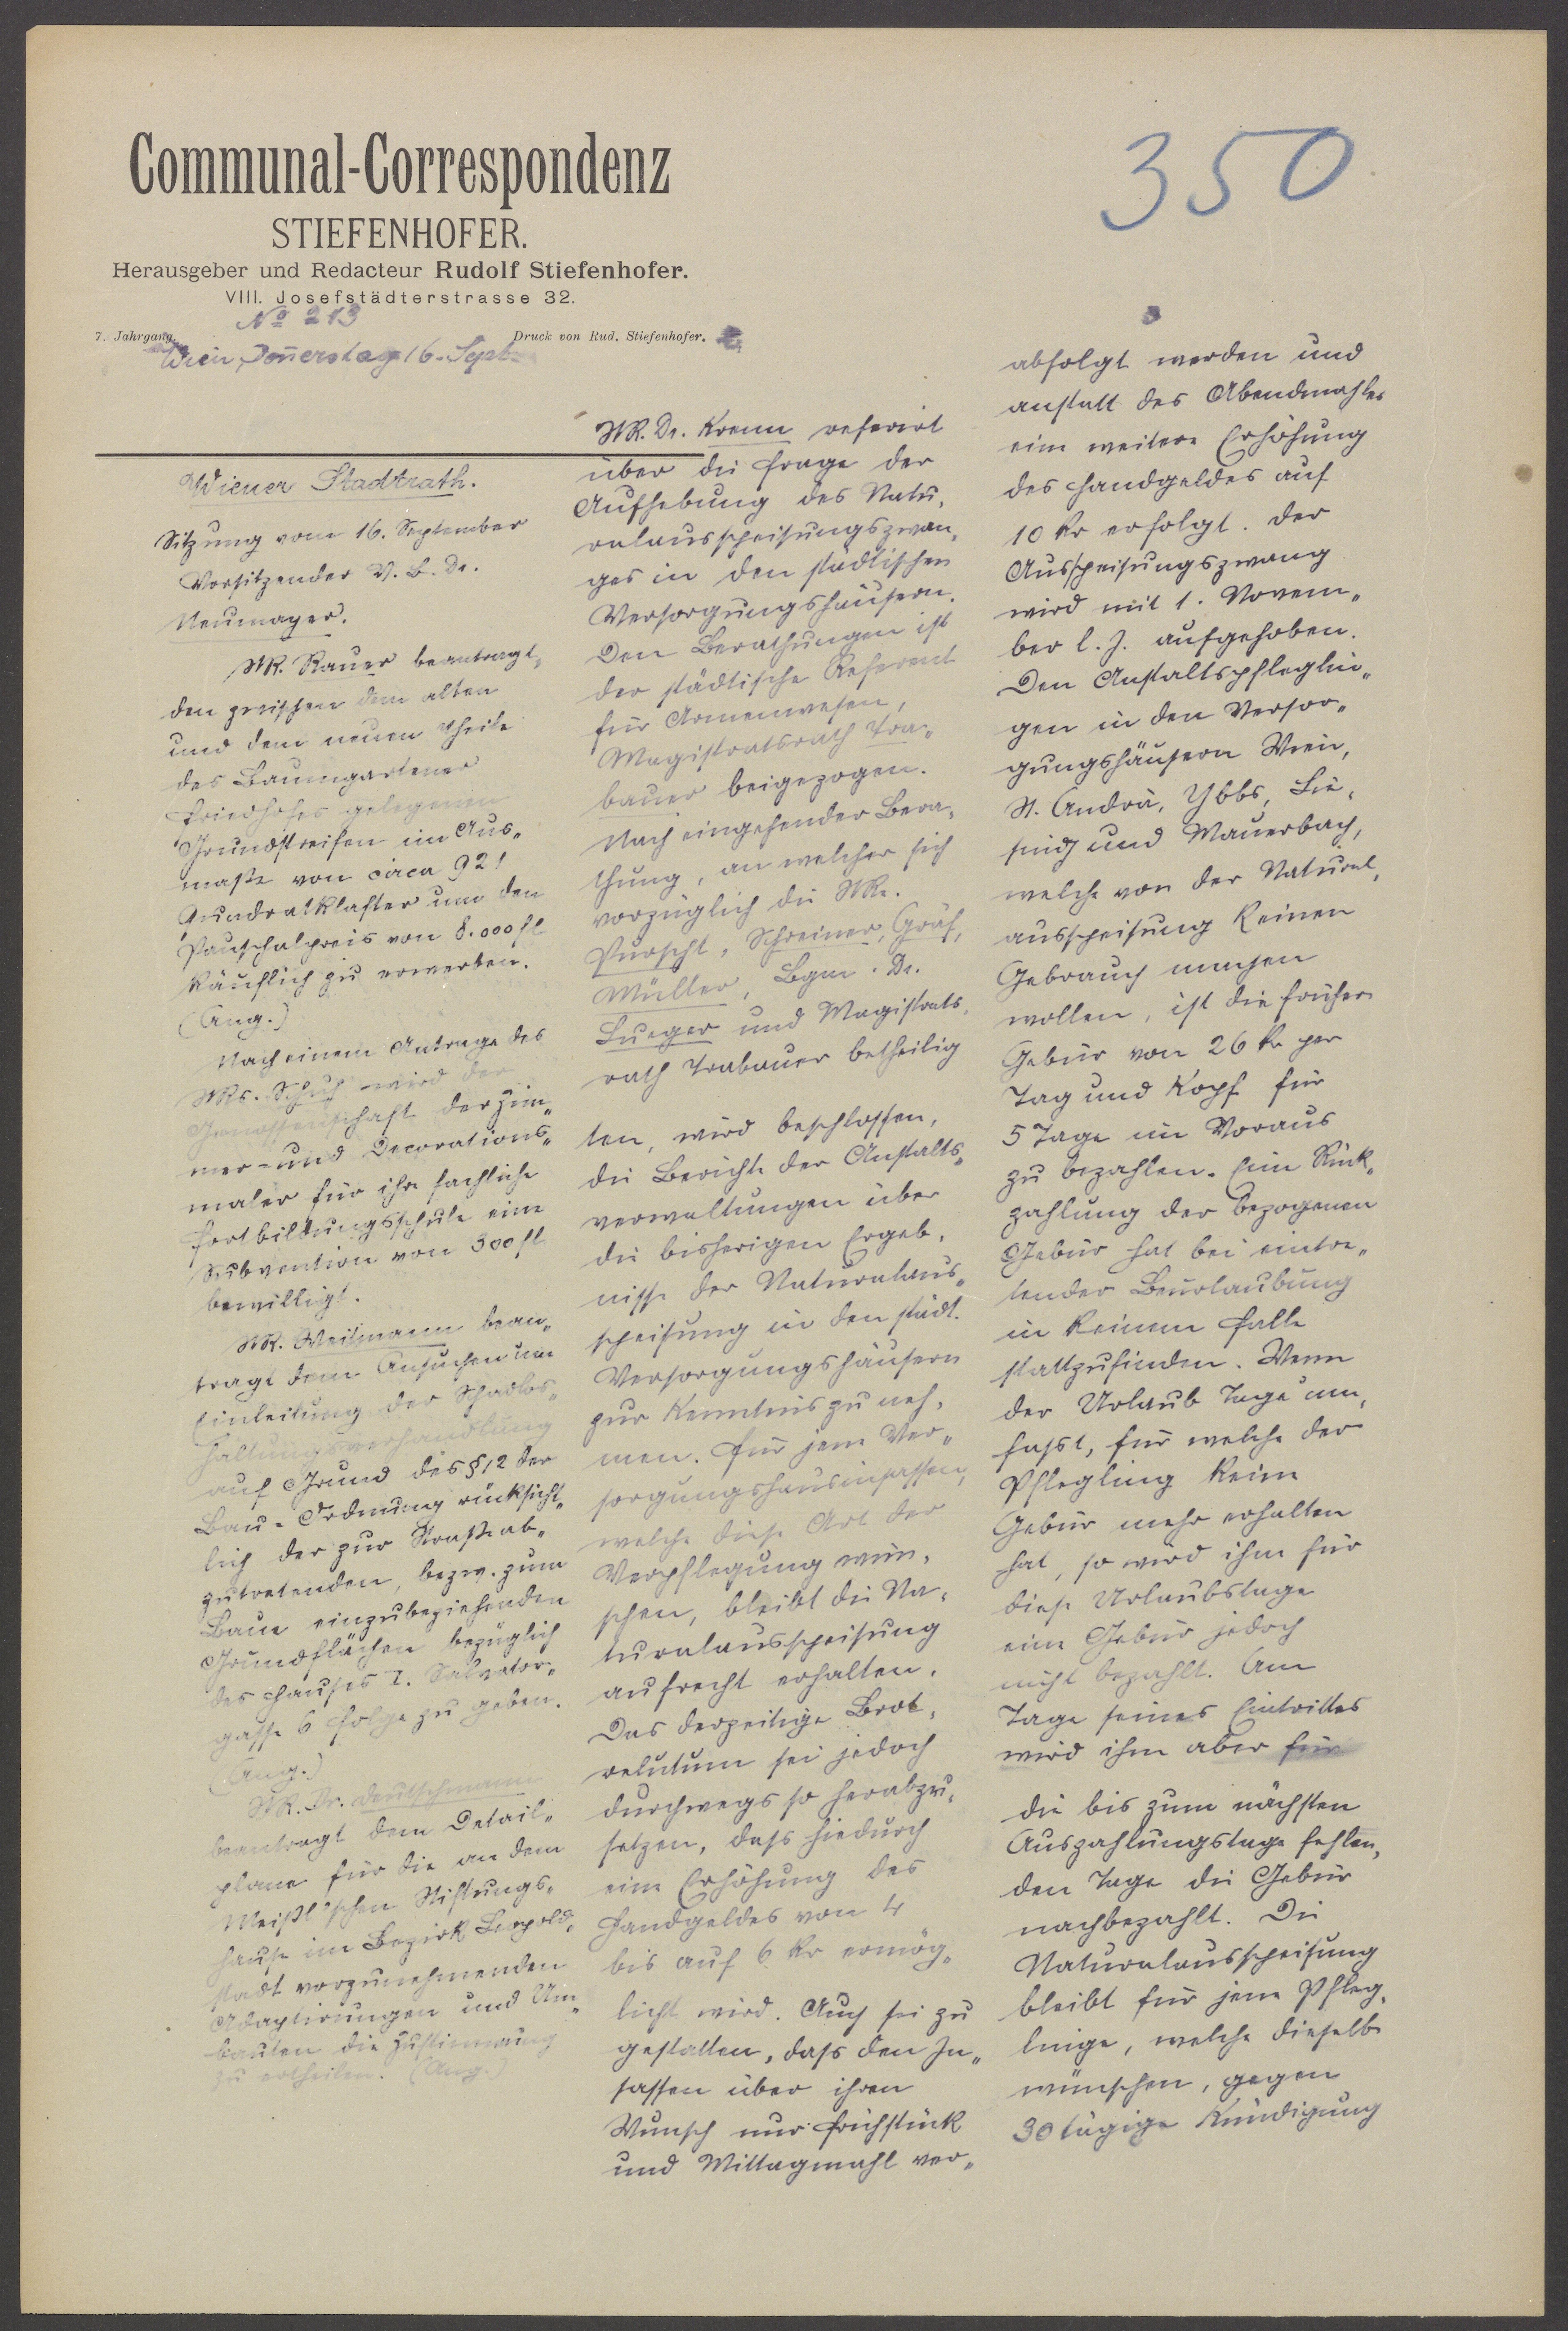 Communal-Correspondenz
STIEFENHOFER.
Herausgeber und Redacteur Rudolf Stiefenhofer.
VIII. Josefstädterstrasse 32.
No 213
7. Jahrgang. Druck von Rud. Stiefenhofer.
Wien, Donnerstag 16. Sept.
350
Wiener Stadtrath.
Sitzung vom 16. September
Vorsitzender V. B. Dr.
Neumayer.
StR. Rauer beantragt,
den zwischen dem alten
und dem neuen Theile
des Baumgartener
Friedhofes gelegenen
Grundstreifen im Aus„
maße von circa 921
Quadratklafter um den
Pauschalpreis von 8.000 fl
käuflich zu erwerben.
(Ang.)
Nach einem Antrage des
StRs. Schuh wird der
Genossenschaft der Zim„
mer- und Decorations„
maler für ihre fachliche
Fortbildungsschule eine
Subvention von 300 fl
bewilligt.
StR. Weitmann bean„
tragt dem Ansuchen um
Einleitung der Schadlos„
haltungsverhandlung
auf Grund des § 12 der
Bau-Ordnung rücksicht„
lich der zur Straße ab„
zutretenden, bezw. zum
Baue einzubeziehenden
Grundflächen bezüglich
des Hauses I. Salvator„
gasse 6 Folge zu geben.
(Ang.)
StR. Dr. Deutschmann
beantragt dem Detail„
plane für die an dem
Weißl'schen Stiftungs„
hause im Bezirk Leopold„
stadt vorzunehmenden
Adaptirungen und Um„
bauten die Zustimmung
zu ertheilen. (Ang.)
StR. Dr. Krenn referirt
über die Frage der
Aufhebung des Natu„
ralausspeisungszwan„
ges in den städtischen
Versorgungshäusern.
Den Berathungen ist
der städtische Referent
für Armenwesen,
Magistratsrath Tra„
bauer beigezogen.
Nach eingehender Bera„
thung, an welcher sich
vorzüglich die StRe.
Purscht, Schreiner, Gräf,
Müller, Bgm. Dr.
Lueger und Magistrats„
rath Trabauer betheilig
ten, wird beschlossen,
die Berichte der Anstalts„
verwaltungen über
die bisherigen Ergeb„
nisse der Naturalaus„
speisung in den städt.
Versorgungshäusern
zur Kenntnis zu neh„
men. Für jene Ver„
sorgungshausinsassen,
welche diese Art der
Verpflegung wün„
schen, bleibt die Na„
turalausspeisung
aufrecht erhalten.
Das derzeitige Brot„
relutum sei jedoch
durchwegs so herabzu„
setzen, dass hiedurch
eine Erhöhung des
Handgeldes von 4
bis auf 6 kr ermög„
licht wird. Auch sei zu
gestatten, dass den In„
sassen über ihren
Wunsch nur Frühstück
und Mittagmahl ver„
abfolgt werden und
anstatt des Abendmahles
eine weitere Erhöhung
des Handgeldes auf
10 kr erfolgt. Der
Ausspeisungszwang
wird mit 1. Novem„
ber l. J. aufgehoben.
Den Anstaltspfleglin„
gen in den Versor„
gungshäusern Wien,
St. Andrä, Ybbs, Lie„
sing und Mauerbach,
welche von der Natural„
ausspeisung keinen
Gebrauch machen
wollen, ist die frühere
Gebür von 26 kr per
Tag und Kopf für
5 Tage im Voraus
zu bezahlen. Eine Rück„
zahlung der bezogenen
Gebür hat bei eintre„
tender Beurlaubung
in keinem Falle
stattzufinden. Wenn
der Urlaub Tage um„
fasst, für welche der
Pflegling keine
Gebür mehr erhalten
hat, so wird ihm für
diese Urlaubstage
eine Gebür jedoch
nicht bezahlt. Am
Tage seines Eintrittes
wird ihm aber für
die bis zum nächsten
Auszahlungstage fehlen„
den Tage die Gebür
nachbezahlt. Die
Naturalausspeisung
bleibt für jene Pfleg„
linge, welche dieselbe
wünschen, gegen
30 tägige Kündigung